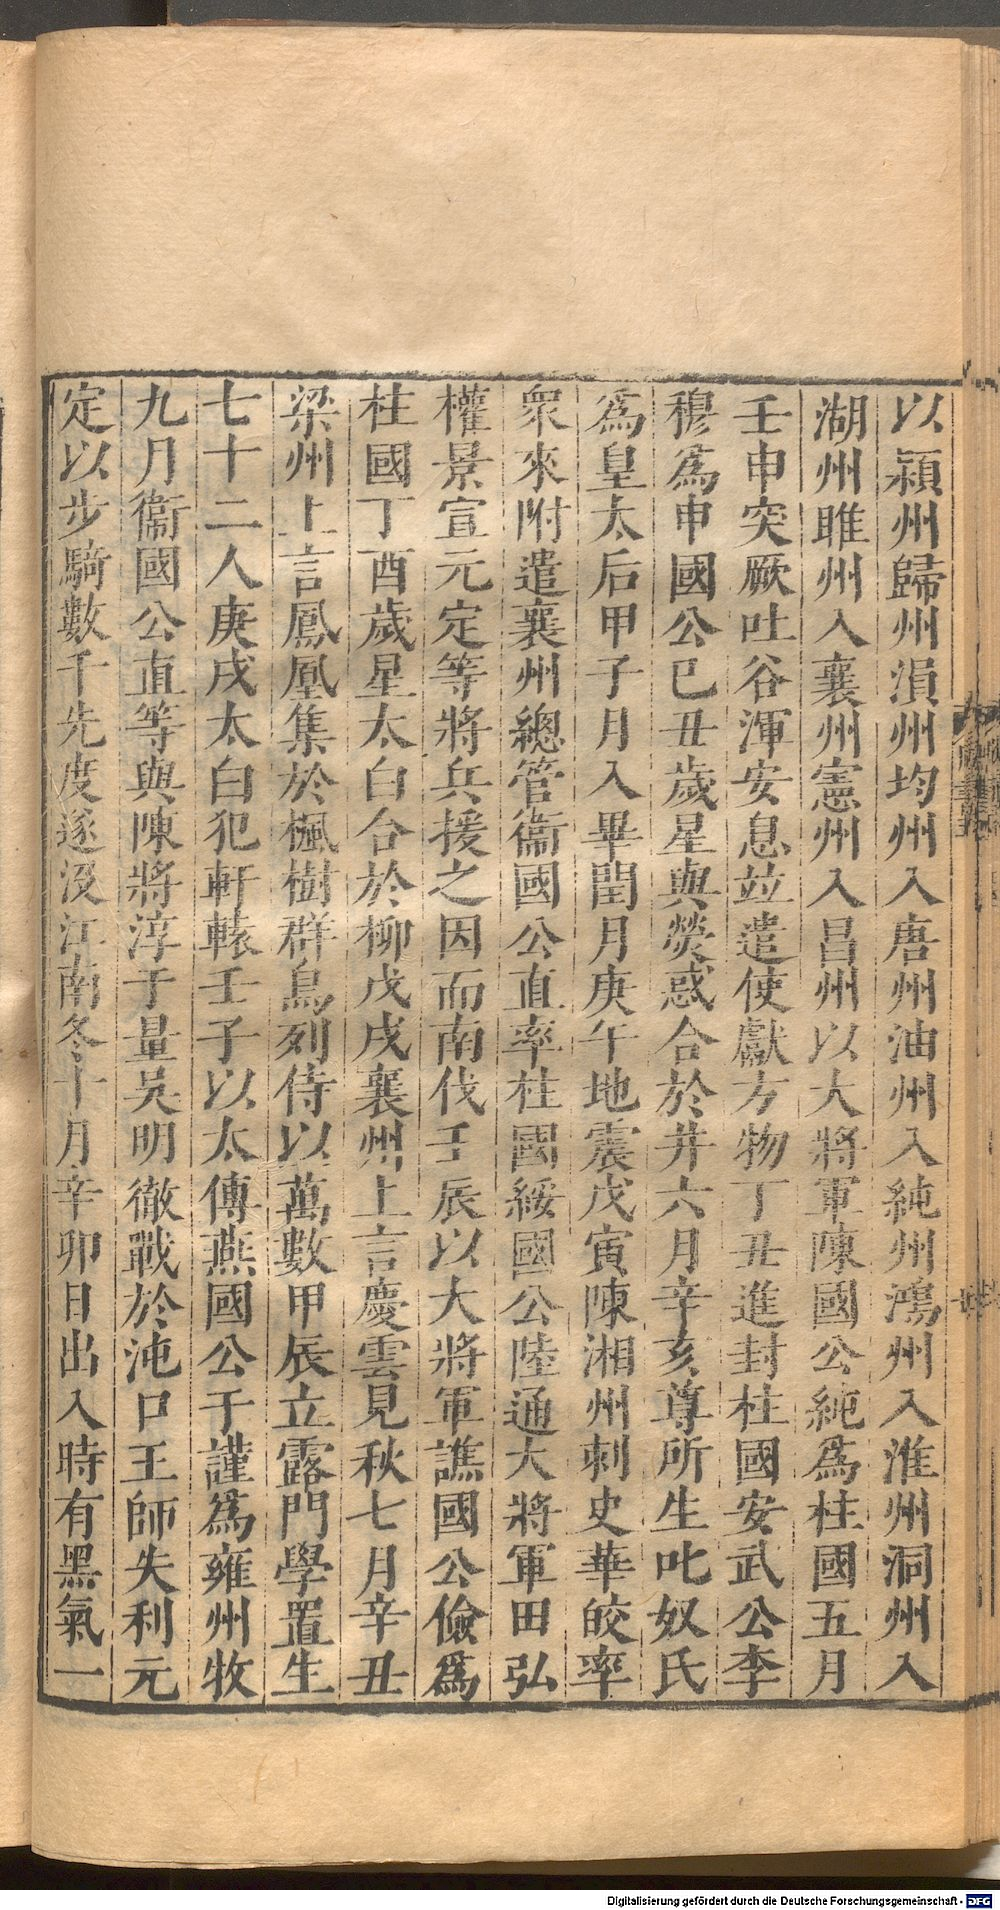 以潁州歸州溳州均州入唐州油州入純州鴻州入淮州洞州入
湖州睢州入襄州憲州入昌州以大將軍陳國公純爲柱國五月
壬申突厥吐谷渾安息竝遣使獻方物丁丑進封柱國安武公李
穆爲申國公巳丑歲星與熒惑合於井六月辛亥尊所生叱奴氏
爲皇太后甲子月入畢閏月庚午地震戊寅陳湘州刺史華皎率
衆來附遣襄州總管衞國公直率柱國綏國公陸通大將軍田弘
權景宣元定等將兵援之因而南伐壬辰以大將軍譙國公儉爲
柱國丁酉歲星太白合於柳戊戌襄州上言慶雲見秋七月辛丑
梁州上言鳳凰集於楓樹群鳥列侍以萬數甲辰立露門學置生
七十二人庚戌太白犯軒轅壬子以太傅燕國公于謹爲雍州牧
九月衞國公直等與陳將淳于量吳明徹戰於沌口王師失利元
定以步騎數千先度遂没江南冬十月辛卯日出入時有黑氣一
Digitalisierung gefördert durch die Deutsche Forschungsgemeinschaft - DFG